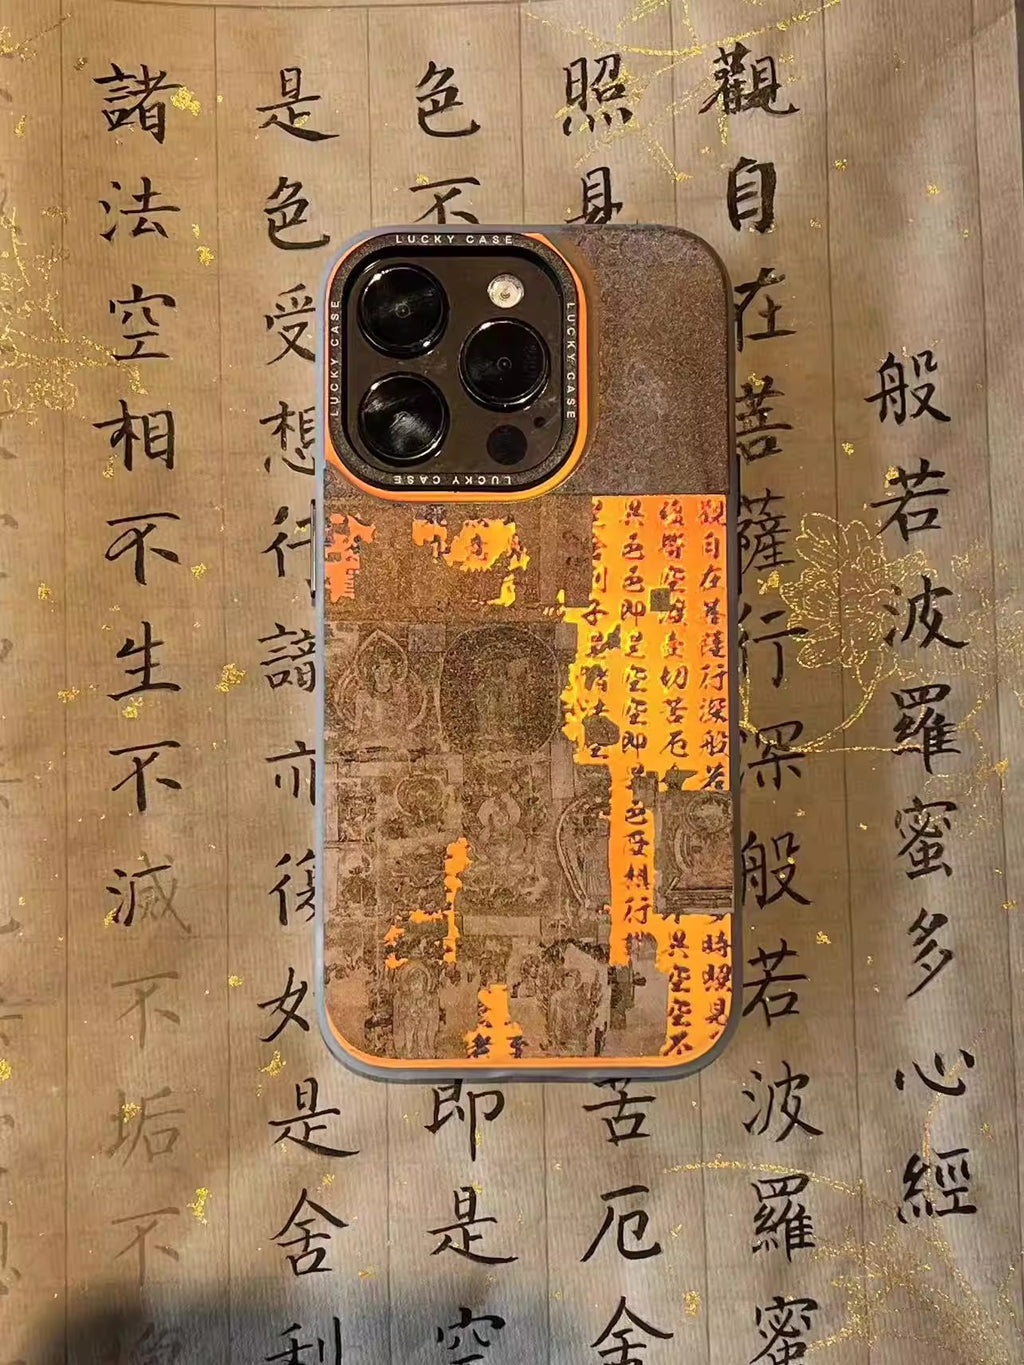 般若波羅蜜多心經
觀自在菩薩行深般若波羅蜜
照見
苦厄舍
色不
即是空
是色受想行識亦復如是舍利
諸法空相不生不滅不垢不
LUCKY CASE
LUCKY CASE
LUCKY CASE
LUCKY CASE
觀自在菩薩行深般若
時照見
皆空度壹切苦厄
異空空不
異色色即是空空即是色受想行識
子是諸法空